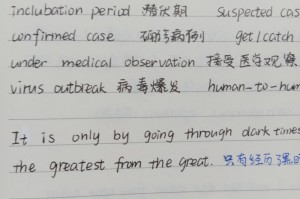 inclubation period 潜伏期 suspected cas
confirmed case 确诊病例 get/catch
under medical observation 接受医学观察
virus outbreak 病毒爆发 human-to-hum
It is only by going through dark times
the greatest from the great. 只有经历